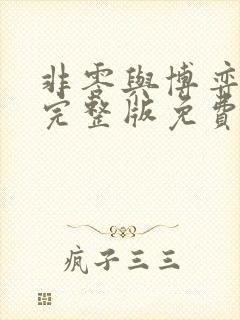 非零與博弈
完整版免費
疯子三三